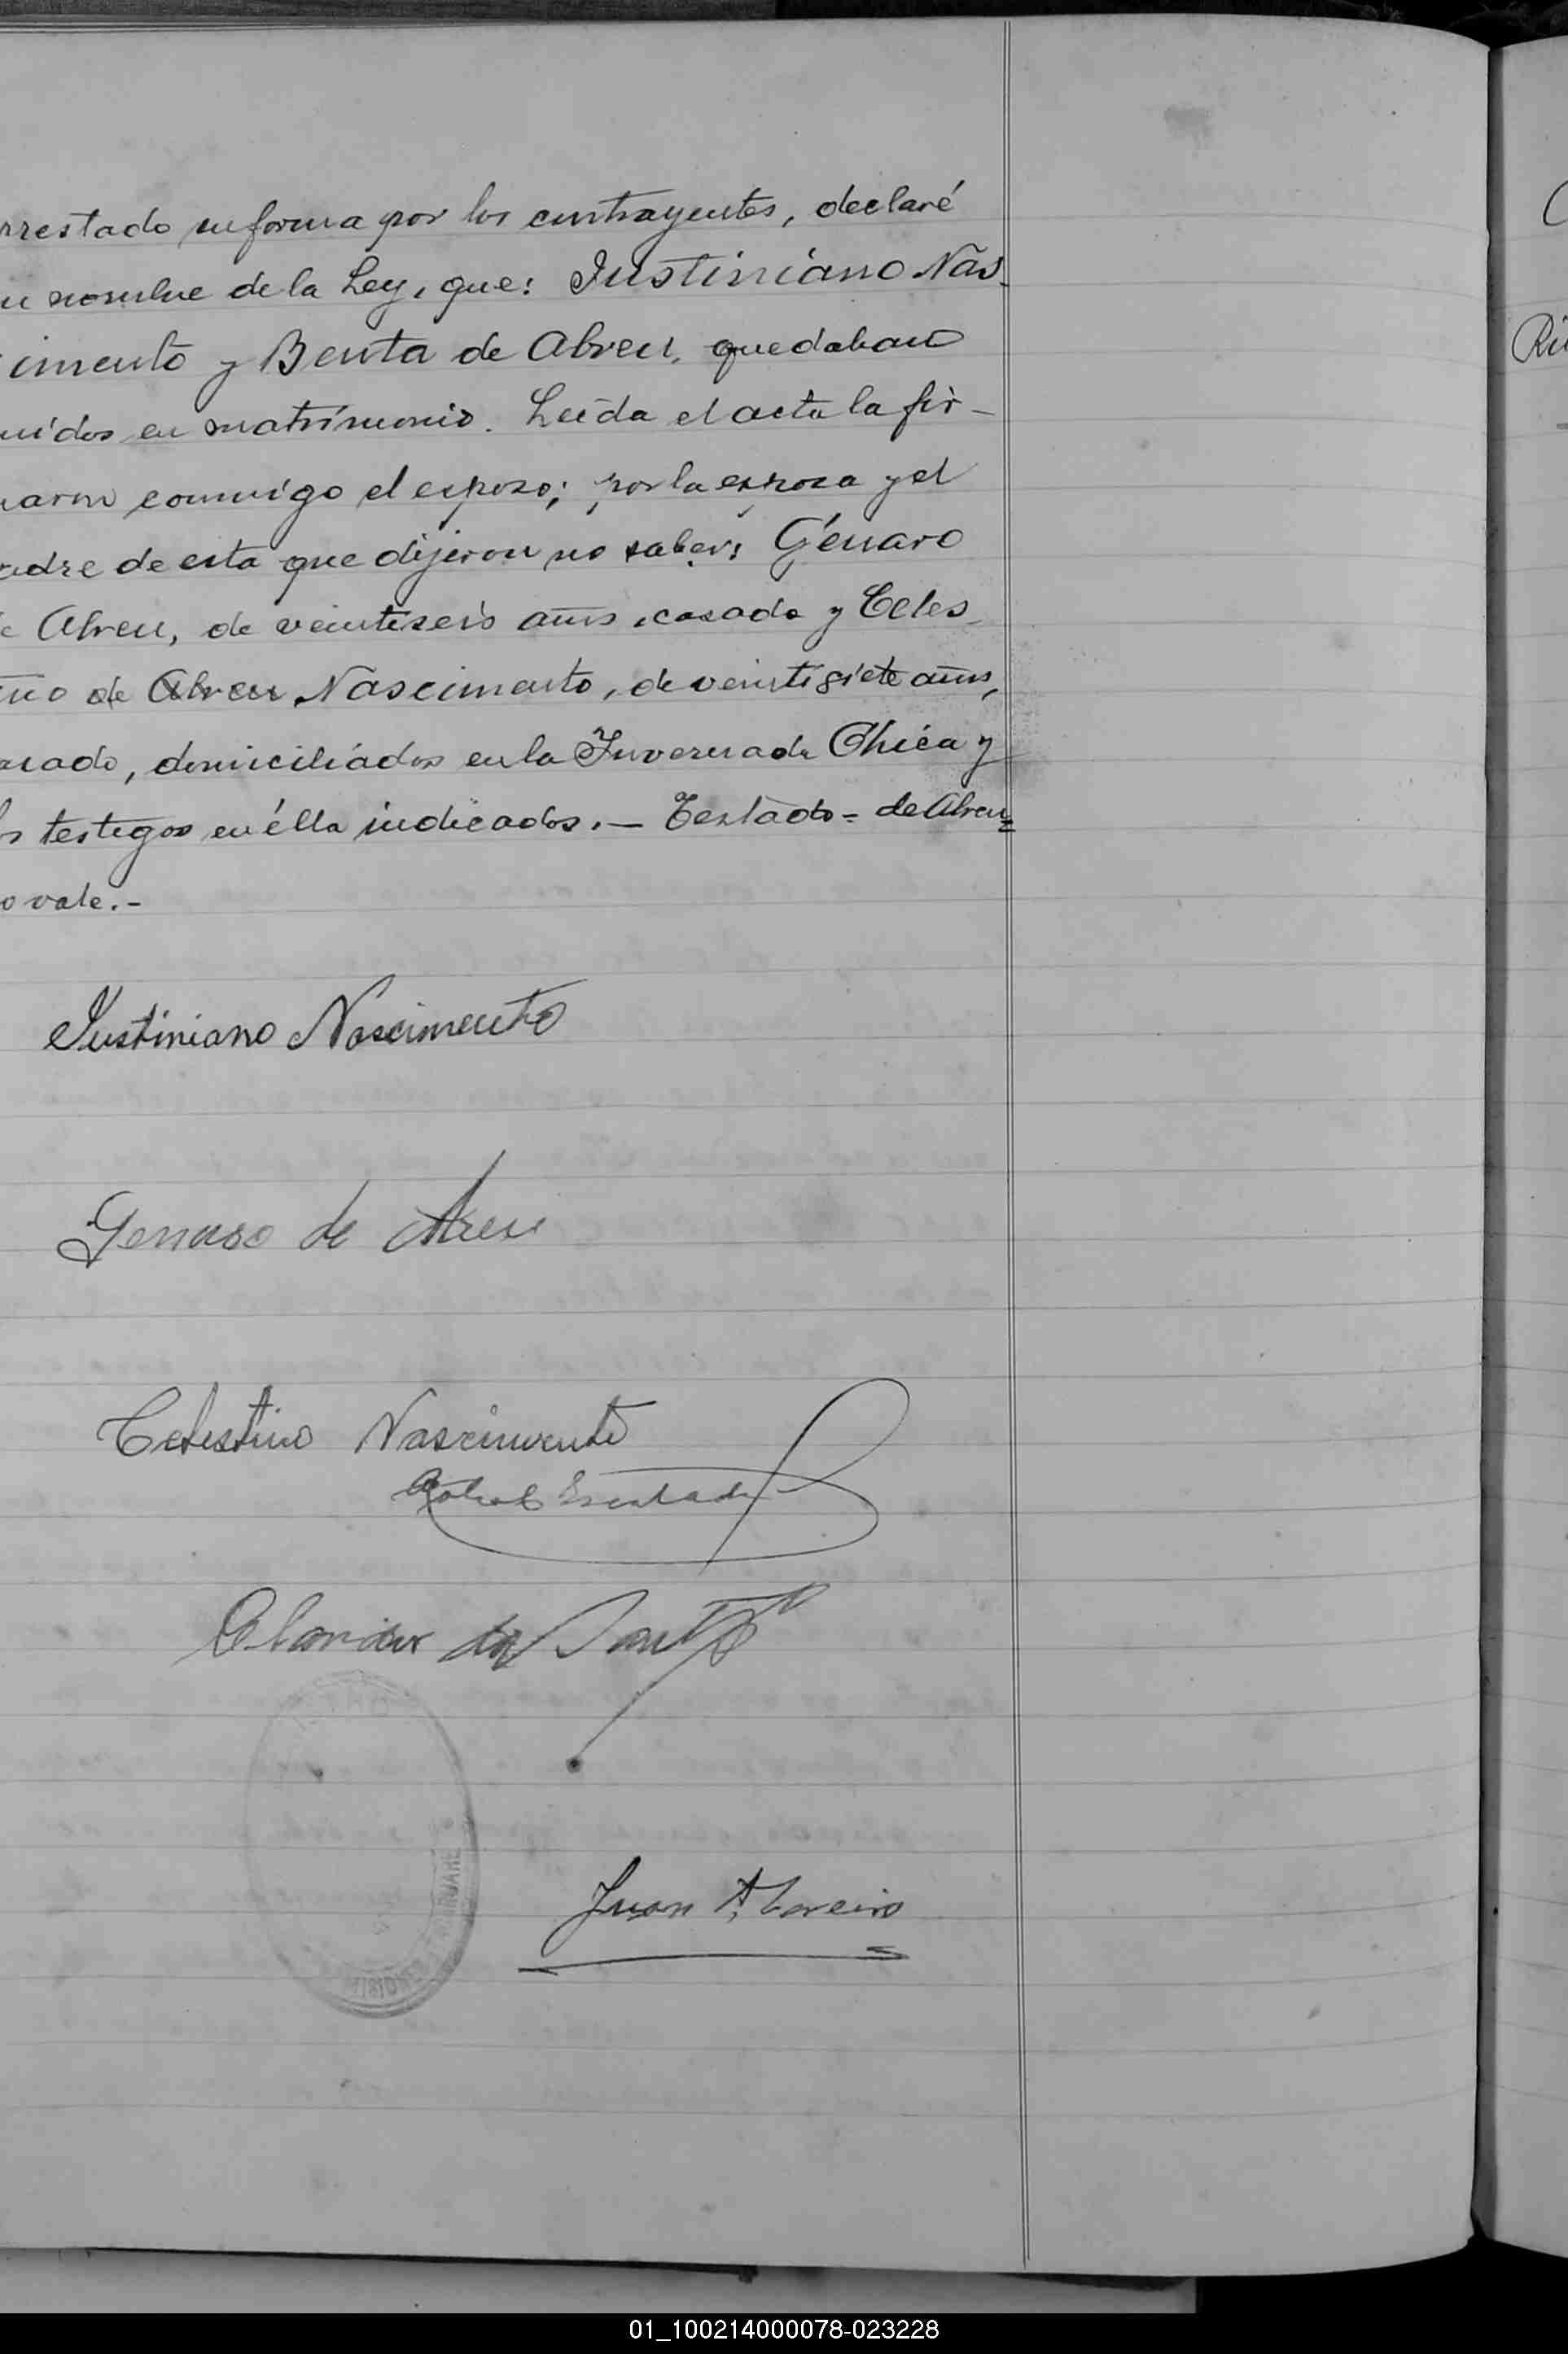 rrestado en forma por los contrayentes, declaré
n nombre de la Ley, que: Justiniano Nas-
cimento y Benta de Abreu, quedaban
nidos en matrimonio. Leída el acta la fir-
maron conmigo el esposo; por la esposa y el
adre de esta que dijeron no saber: Génaro
e Abreu, de veintiseis años, casado y Celes-
tino de Abreu Nascimento, de veintisiete años,
asado, domiciliádos en la Invernada Chica y
os testigos en élla indicados.— Testado = de Abreu =
o vale.-
Justiniano Nascimento
Genaro de Abreu
Celestino Nascimento
Juan A.
MISIONES
Ri
01_100214000078-023228